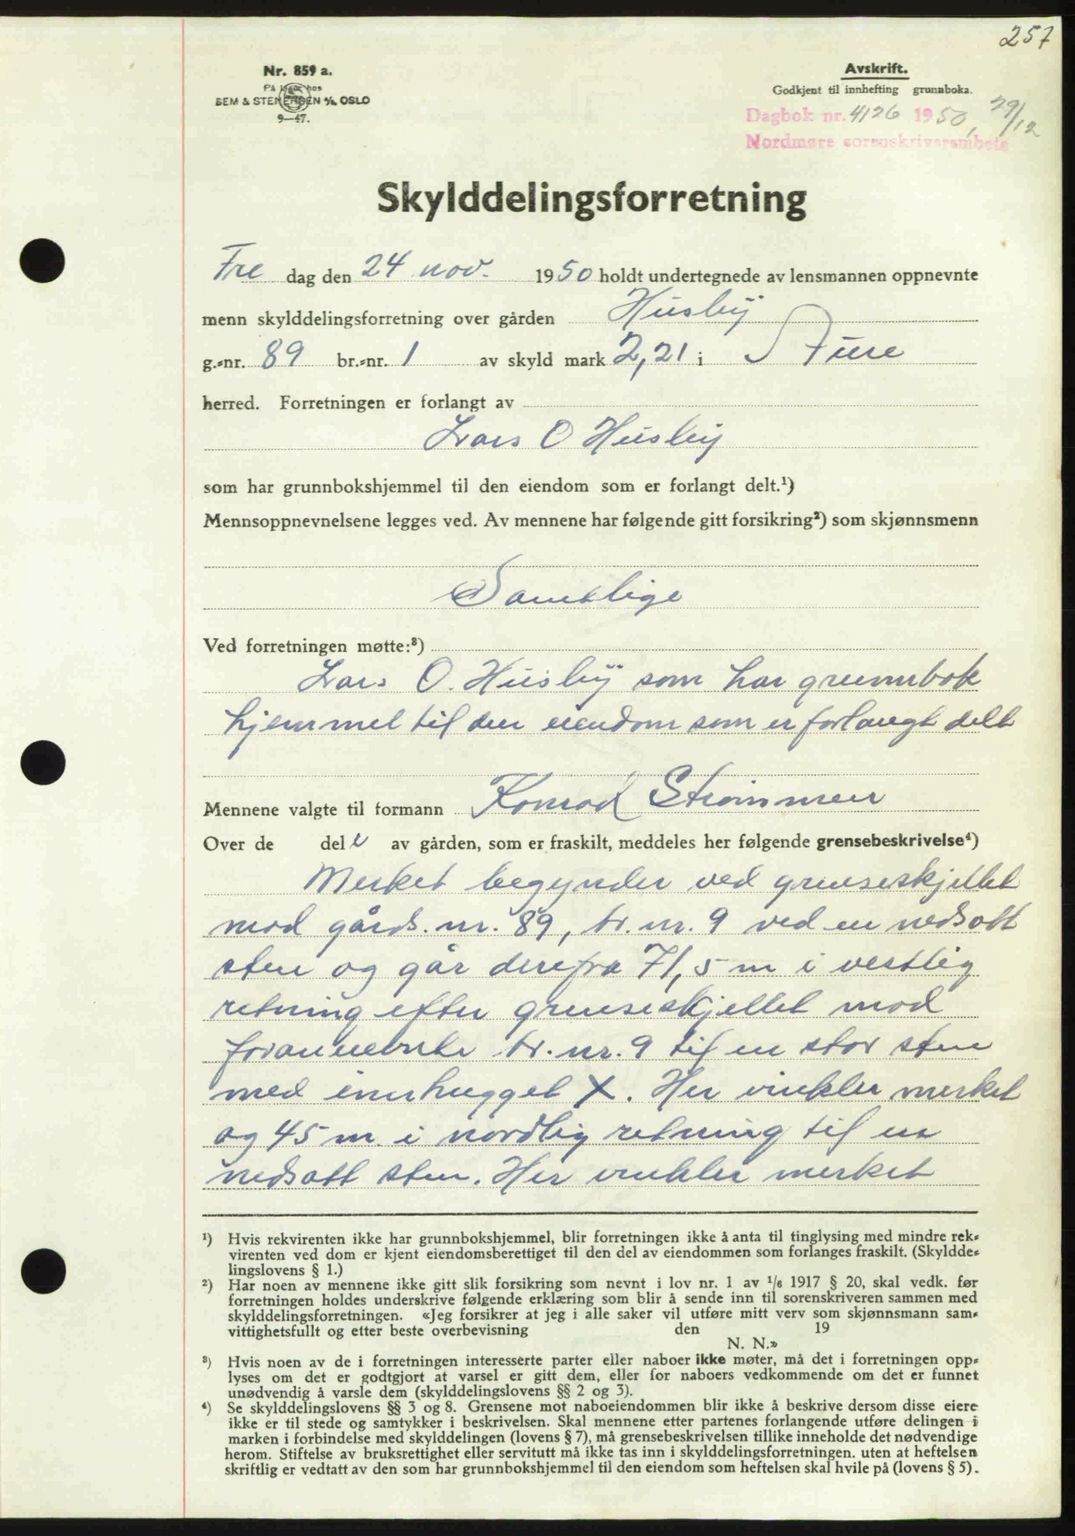 257
Nr. 859 a.
På lager hos
SEM & STENERSEN A/S, OSLO
9—47.
Avskrift.
Godkjent til innhefting grunnboka.
Dagbok nr. 4126 1950, 29/12
Nordmøre sorenskriverembete
Skylddelingsforretning
Fre dag den 24 nov. 1950 holdt undertegnede av lensmannen oppnevnte
menn skylddelingsforretning over gården Husby
g.-nr. 89 br.-nr. 1 av skyld mark 2,21 i Sture
herred. Forretningen er forlangt av
Lars O Husby
som har grunnbokshjemmel til den eiendom som er forlangt delt.¹)
Mennsoppnevnelsene legges ved. Av mennene har følgende gitt forsikring²) som skjønnsmenn
Samtlige
Ved forretningen møtte:³)
Lars O. Husby som har grunnbok
hjemmel til den eiendom som er forlangt delt
Mennene valgte til formann Konrad Strømmen
Over de del e av gården, som er fraskilt, meddeles her følgende grensebeskrivelse⁴)
Merket begynder ved grenseskjellet
mod gårds. nr. 89, br. nr. 9 ved en nedsatt
sten og går derefra 71,5 m i vestlig
retning efter grenseskjellet mod
forannevnte br. nr. 9 til en stor sten
med innhugget X. Her vinkler merket
og 45 m i nordlig retning til en
nedsatt sten. Her vinkler merket
¹) Hvis rekvirenten ikke har grunnbokshjemmel, blir forretningen ikke å anta til tinglysing med mindre rek-
virenten ved dom er kjent eiendomsberettiget til den del av eiendommen som forlanges fraskilt. (Skyldde-
lingslovens § 1.)
²) Har noen av mennene ikke gitt slik forsikring som nevnt i lov nr. 1 av 1/6 1917 § 20, skal vedk. før
forretningen holdes underskrive følgende erklæring som blir å sende inn til sorenskriveren sammen med
skylddelingsforretningen. «Jeg forsikrer at jeg i alle saker vil utføre mitt verv som skjønnsmann sam-
vittighetsfullt og etter beste overbevisning den 19
N. N.»
³) Hvis noen av de i forretningen interesserte parter eller naboer ikke møter, må det i forretningen opp-
lyses om det er godtgjort at varsel er gitt dem, eller for naboers vedkommende om det er funnet
unødvendig å varsle dem (skylddelingslovens §§ 2 og 3).
⁴) Se skylddelingslovens §§ 3 og 8. Grensene mot naboeiendommen blir ikke å beskrive dersom disse eiere
ikke er til stede og samtykker i beskrivelsen. Skal mennene etter partenes forlangende utføre delingen i
marken i forbindelse med skylddelingen (lovens § 7), må grensebeskrivelsen tillike inneholde det nødvendige
herom. Stiftelse av bruksrettighet eller servitutt må ikke tas inn i skylddelingsforretningen, uten at heftelsen
skriftlig er vedtatt av den som har grunnbokshjemmel til den eiendom som heftelsen skal hvile på (lovens § 5).